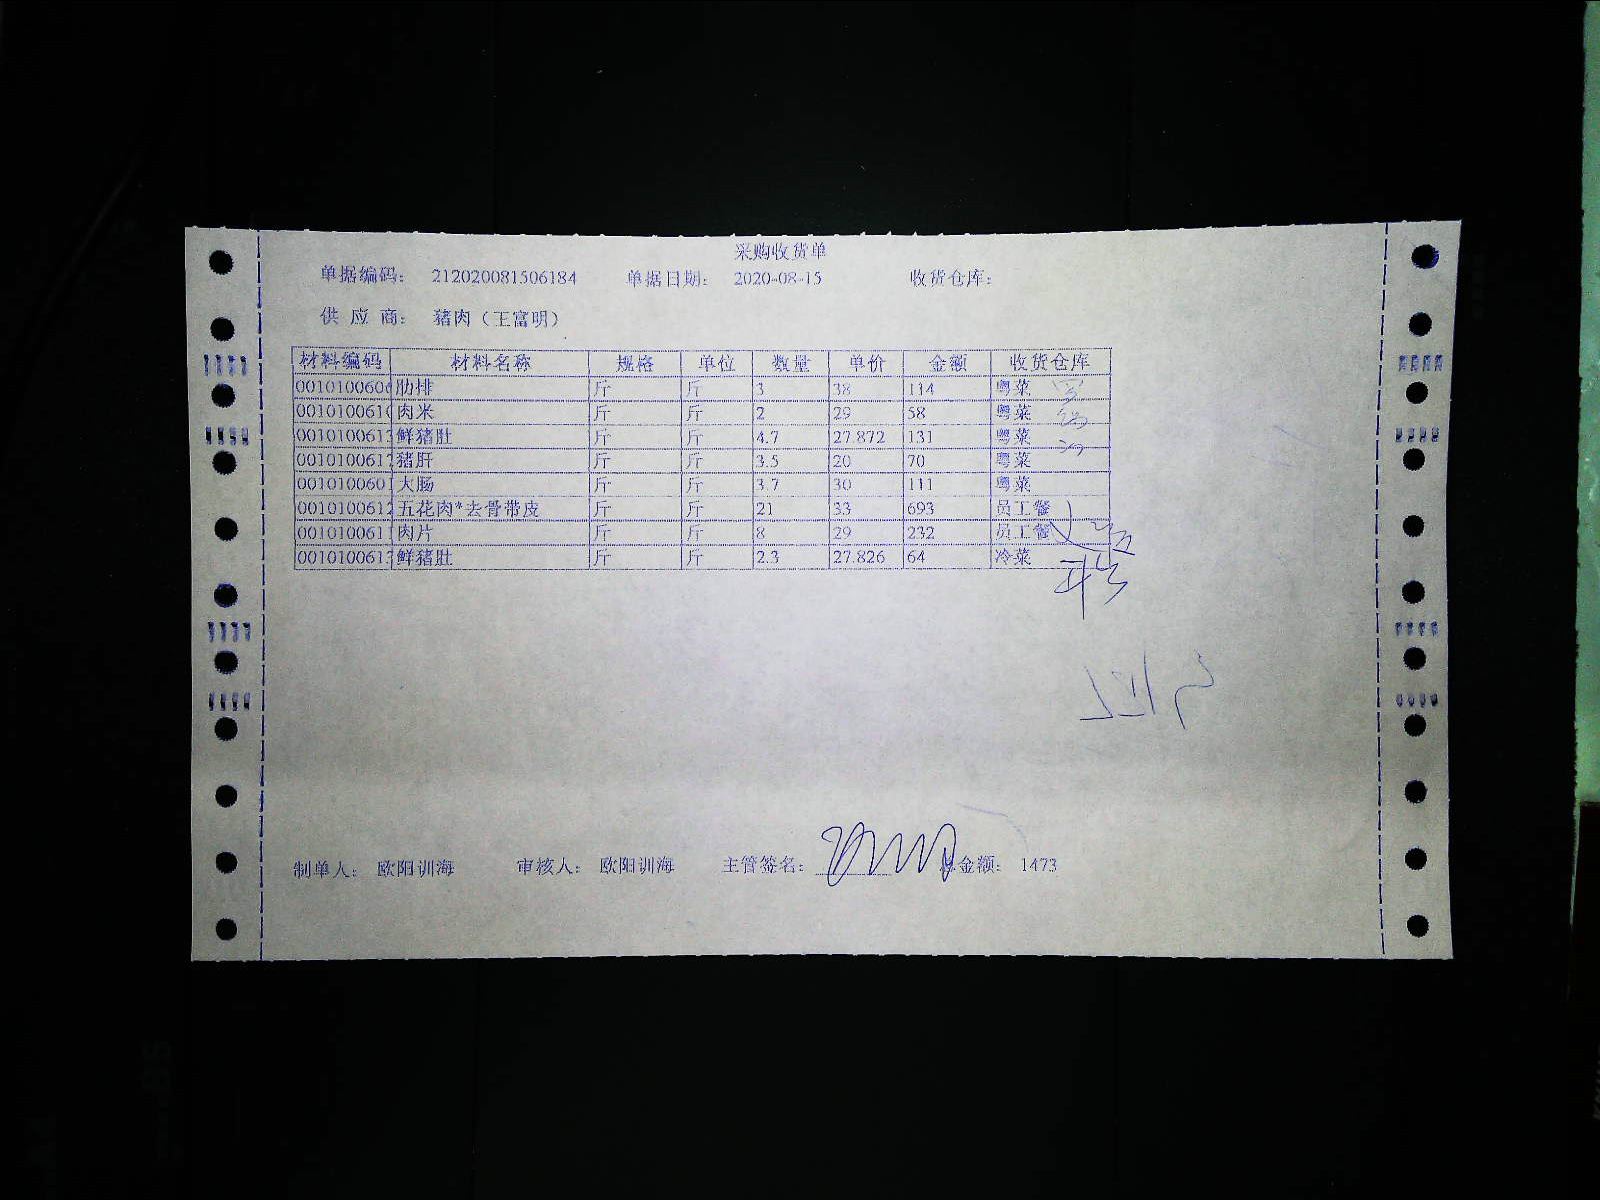 采购收货单
单据编码: 212020081506184 单据日期: 2020-08-15 收货仓库:
供 应 商: 猪肉（王富明）
材料编码 材料名称 规格 单位 数量 单价 金额 收货仓库
0010100606 肋排 斤 斤 3 38 114 粤菜
001010061 肉米 斤 斤 2 29 58 粤菜
001010061 鲜猪肚 斤 斤 4.7 27.872 131 粤菜
001010061 猪肝 斤 斤 3.5 20 70 粤菜
001010060 大肠 斤 斤 3.7 30 111 粤菜
0010100612 五花肉*去骨带皮 斤 斤 21 33 693 员工餐
001010061 肉片 斤 斤 8 29 232 员工餐
001010061 鲜猪肚 斤 斤 2.3 27.826 64 冷菜
制单人: 欧阳训海 审核人: 欧阳训海 主管签名: 金额: 1473